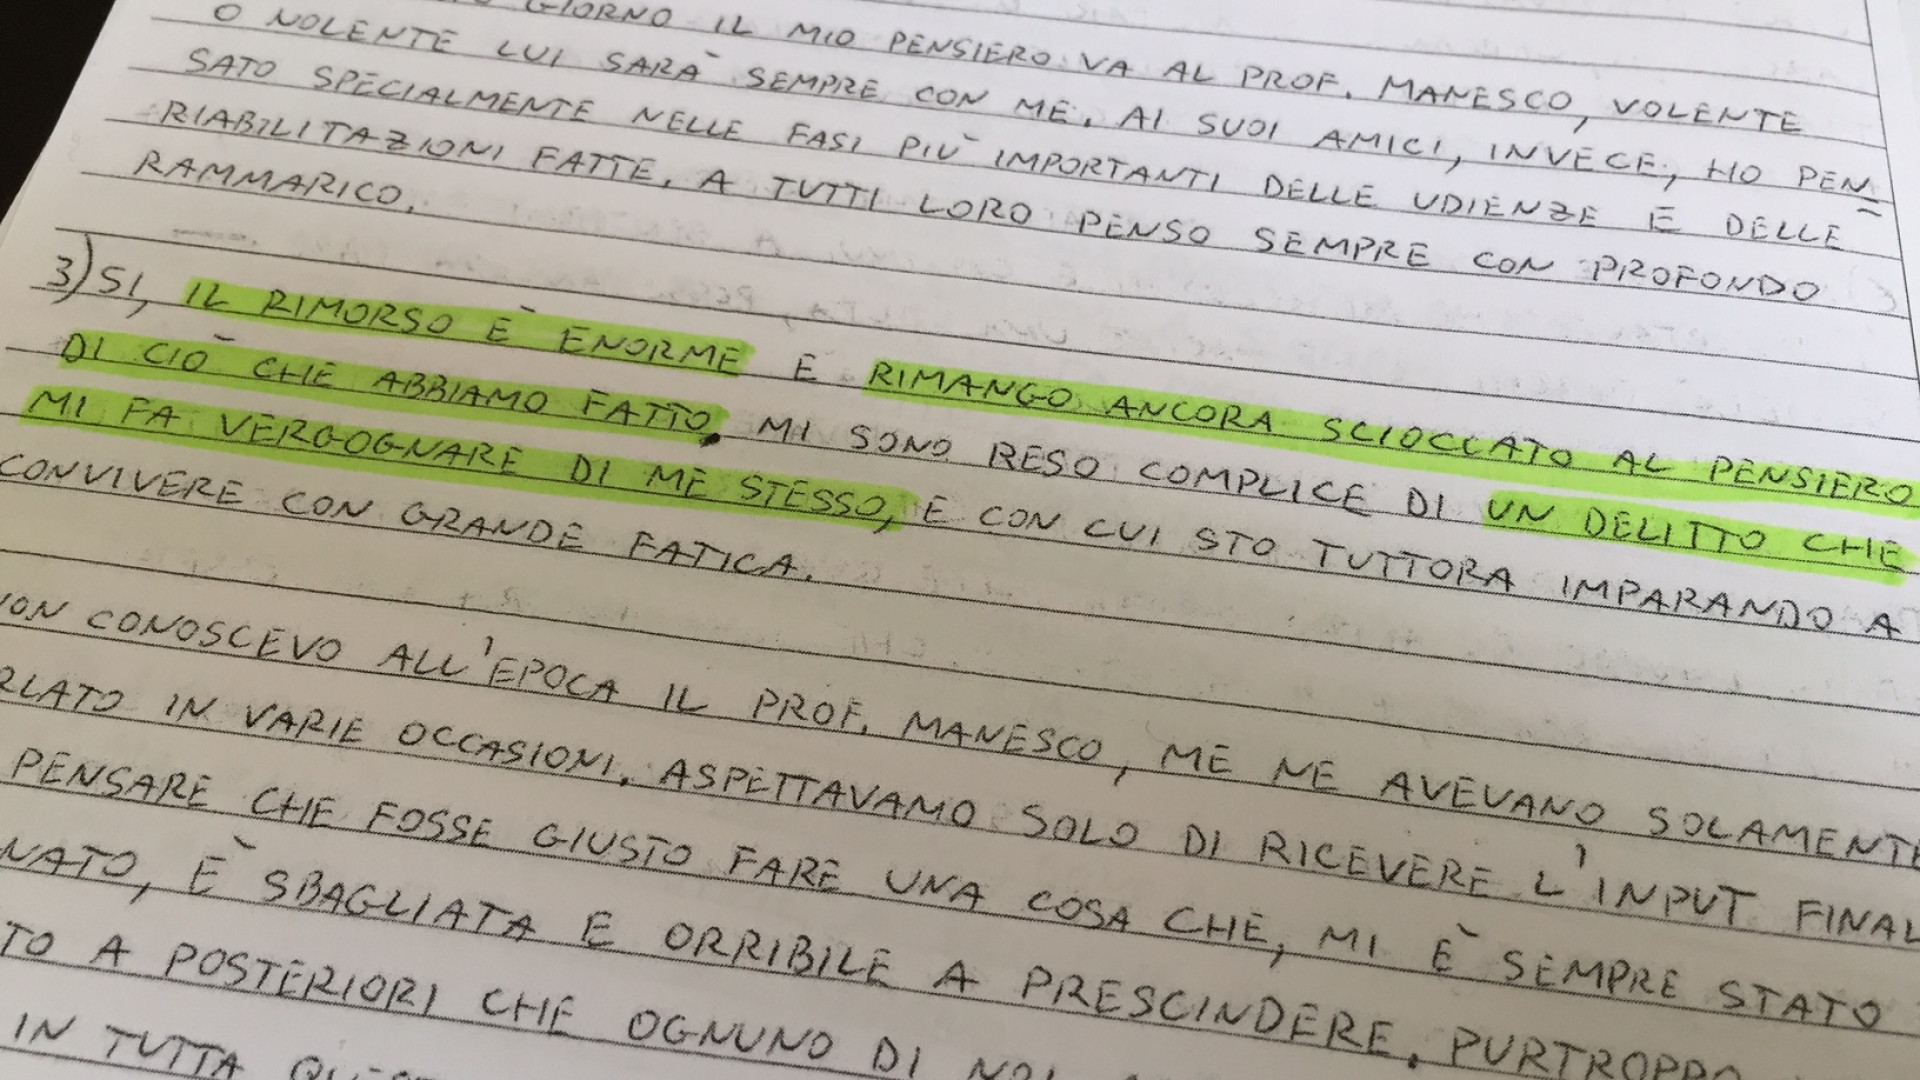 GIORNO IL MIO PENSIERO VA AL PROF. MANESCO, VOLENTE
O NOLENTE LUI SARÀ SEMPRE CON ME. AI SUOI AMICI, INVECE, HO PEN=
SATO SPECIALMENTE NELLE FASI PIÙ IMPORTANTI DELLE UDIENZE E DELLE
RIABILITAZIONI FATTE. A TUTTI LORO PENSO SEMPRE CON PROFONDO
RAMMARICO.
3) SI, IL RIMORSO È ENORME E RIMANGO ANCORA SCIOCCATO AL PENSIERO
DI CIÒ CHE ABBIAMO FATTO. MI SONO RESO COMPLICE DI UN DELITTO CHE
MI FA VERGOGNARE DI ME STESSO, E CON CUI STO TUTTORA IMPARANDO A
CONVIVERE CON GRANDE FATICA.
ON CONOSCEVO ALL'EPOCA IL PROF. MANESCO, ME NE AVEVANO SOLAMENTE
RLATO IN VARIE OCCASIONI. ASPETTAVAMO SOLO DI RICEVERE L'INPUT FINAL
PENSARE CHE FOSSE GIUSTO FARE UNA COSA CHE, MI È SEMPRE STATO
NATO, È SBAGLIATA E ORRIBILE A PRESCINDERE. PURTROPPO
TO A POSTERIORI CHE OGNUNO DI NOI
IN TUTTA